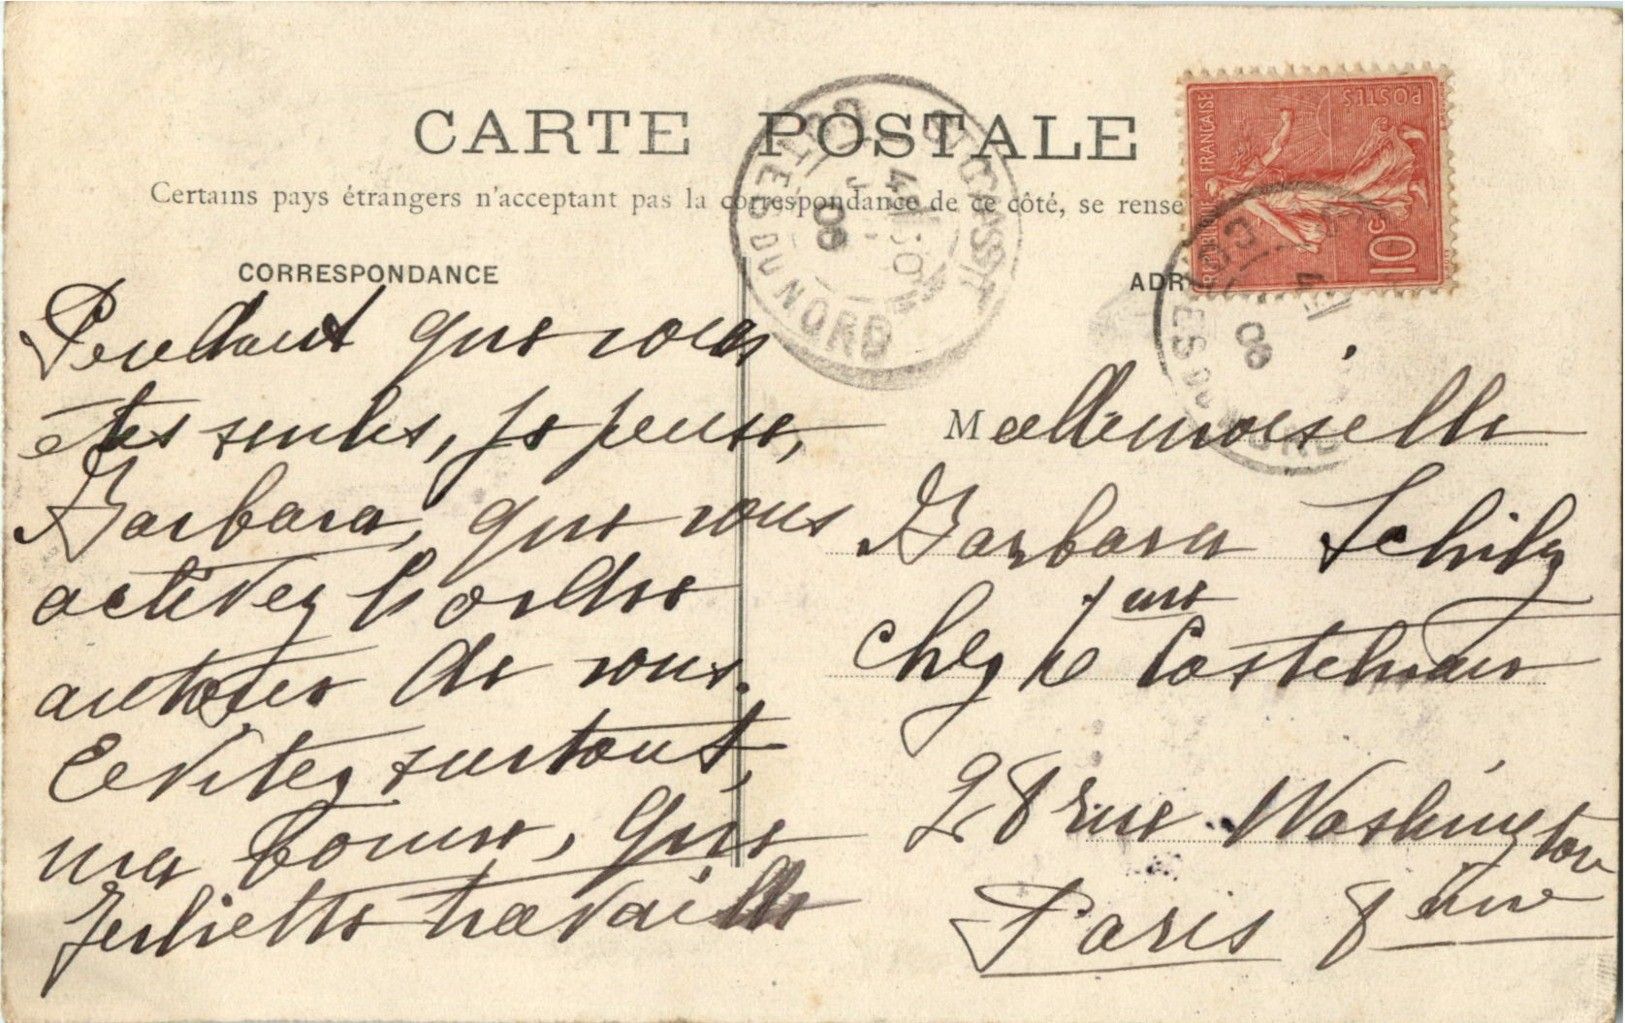 CARTE POSTALE
Certains pays étrangers n'acceptant pas la correspondance de ce côté, se rense
CORRESPONDANCE
ADR
Pendant que vous
êtes seules, je pense,
Barbara, que vous
activez l'ordre
autour de vous.
Evitez surtout,
ma bonne, que
Juliette travaille
Mademoiselle
Barbara
chez
28 rue Washington
Paris 8ème
REPUBLIQUE FRANCAISE
POSTES
10c
COTES DU NORD
4
08
CÔTES DU NORD
4
08